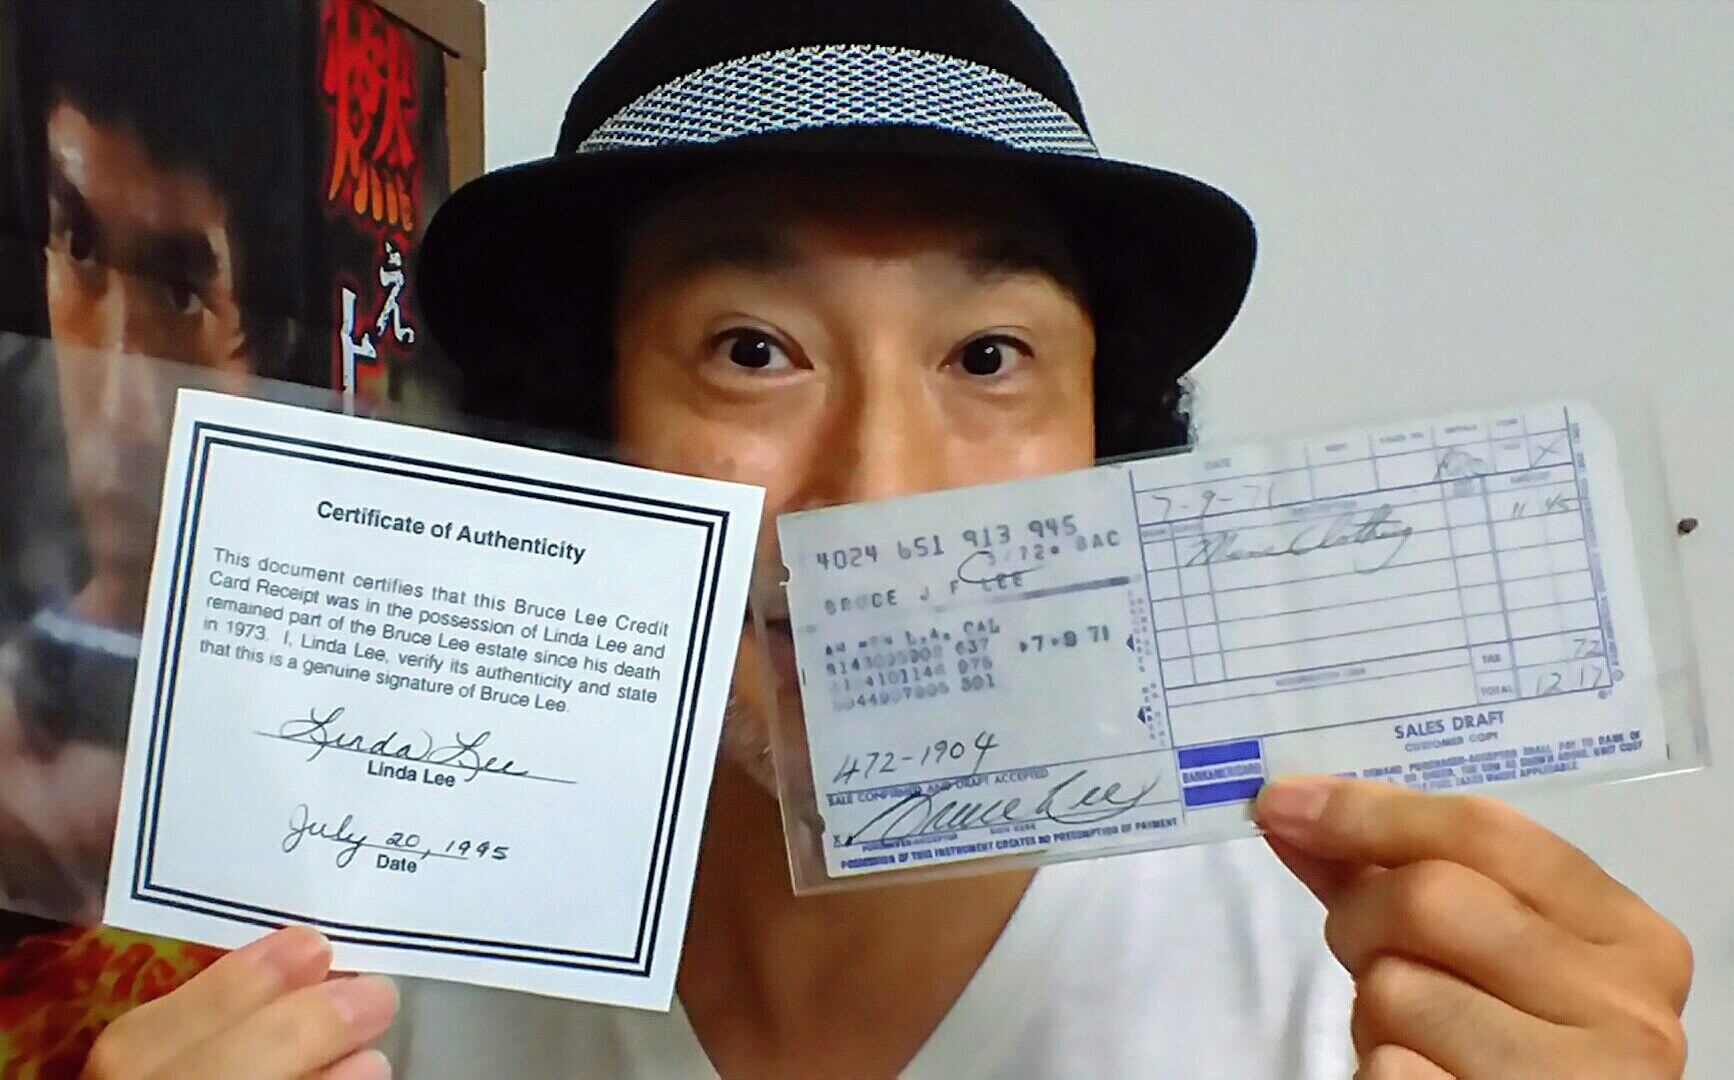 燃えよ
Certificate of Authenticity
This document certifies that this Bruce Lee Credit
Card Receipt was in the possession of Linda Lee and
remained part of the Bruce Lee estate since his death
in 1973. I, Linda Lee, verify its authenticity and state
that this is a genuine signature of Bruce Lee.
Linda Lee
Linda Lee
July 20, 1995
Date
DATE
7-9-71
11 45
4024 651 913 945
BAC
BRUCE J F LEE
L.A. CAL
637
7 9 71
11 4101146 075
501
472-1904
SALE CONFIRMED AND DRAFT ACCEPTED
X Bruce Lee
POSSESSION OF THIS INSTRUMENT CREATES NO PRESUMPTION OF PAYMENT
Clothing
TAX 72
TOTAL 12 17
SALES DRAFT
CUSTOMER COPY
BANKAMERICARD